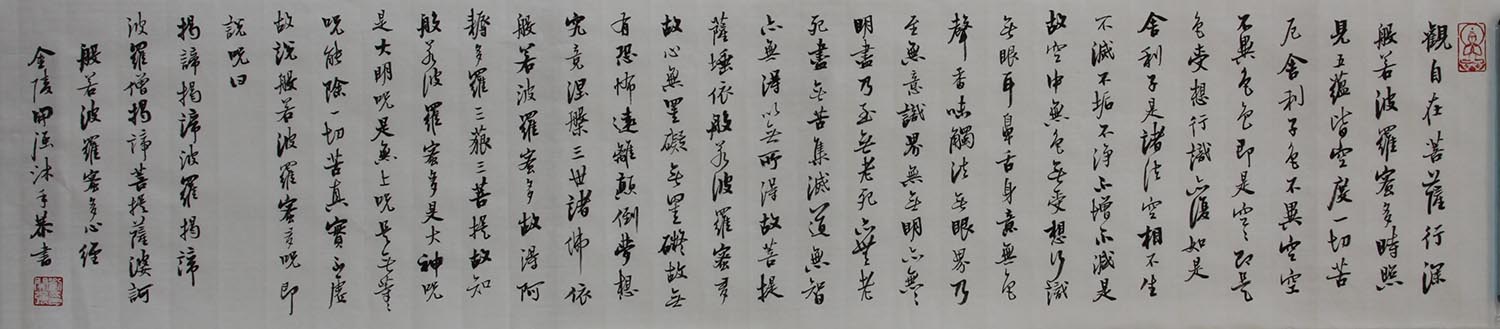 觀自在菩薩行深
般若波羅蜜多時照
見五蘊皆空度一切苦
厄舍利子色不異空空
不異色色即是空々即是
色受想行識亦復如是
舍利子是諸法空相不生
不滅不垢不淨不增不減是
故空中無色無受想行識
無眼耳鼻舌身意無色
聲香味觸法無眼界乃
至無意識界無明亦無々
明盡乃至無老死亦無老
死盡無苦集滅道無智
亦無得以無所得故菩提
薩埵依般若波羅蜜多
故心無罣礙無罣礙故無
有恐怖遠離顛倒夢想
究竟涅槃三世諸佛依
般若波羅蜜多故得阿
耨多羅三藐三菩提故知
般若波羅蜜多是大神咒
是大明咒是無上咒是無等々
咒能除一切苦真實不虛
故說般若波羅蜜多咒即
說咒曰
揭諦揭諦波羅揭諦
波羅僧揭諦菩提薩婆訶
般若波羅蜜多心經
金陵沐手恭書